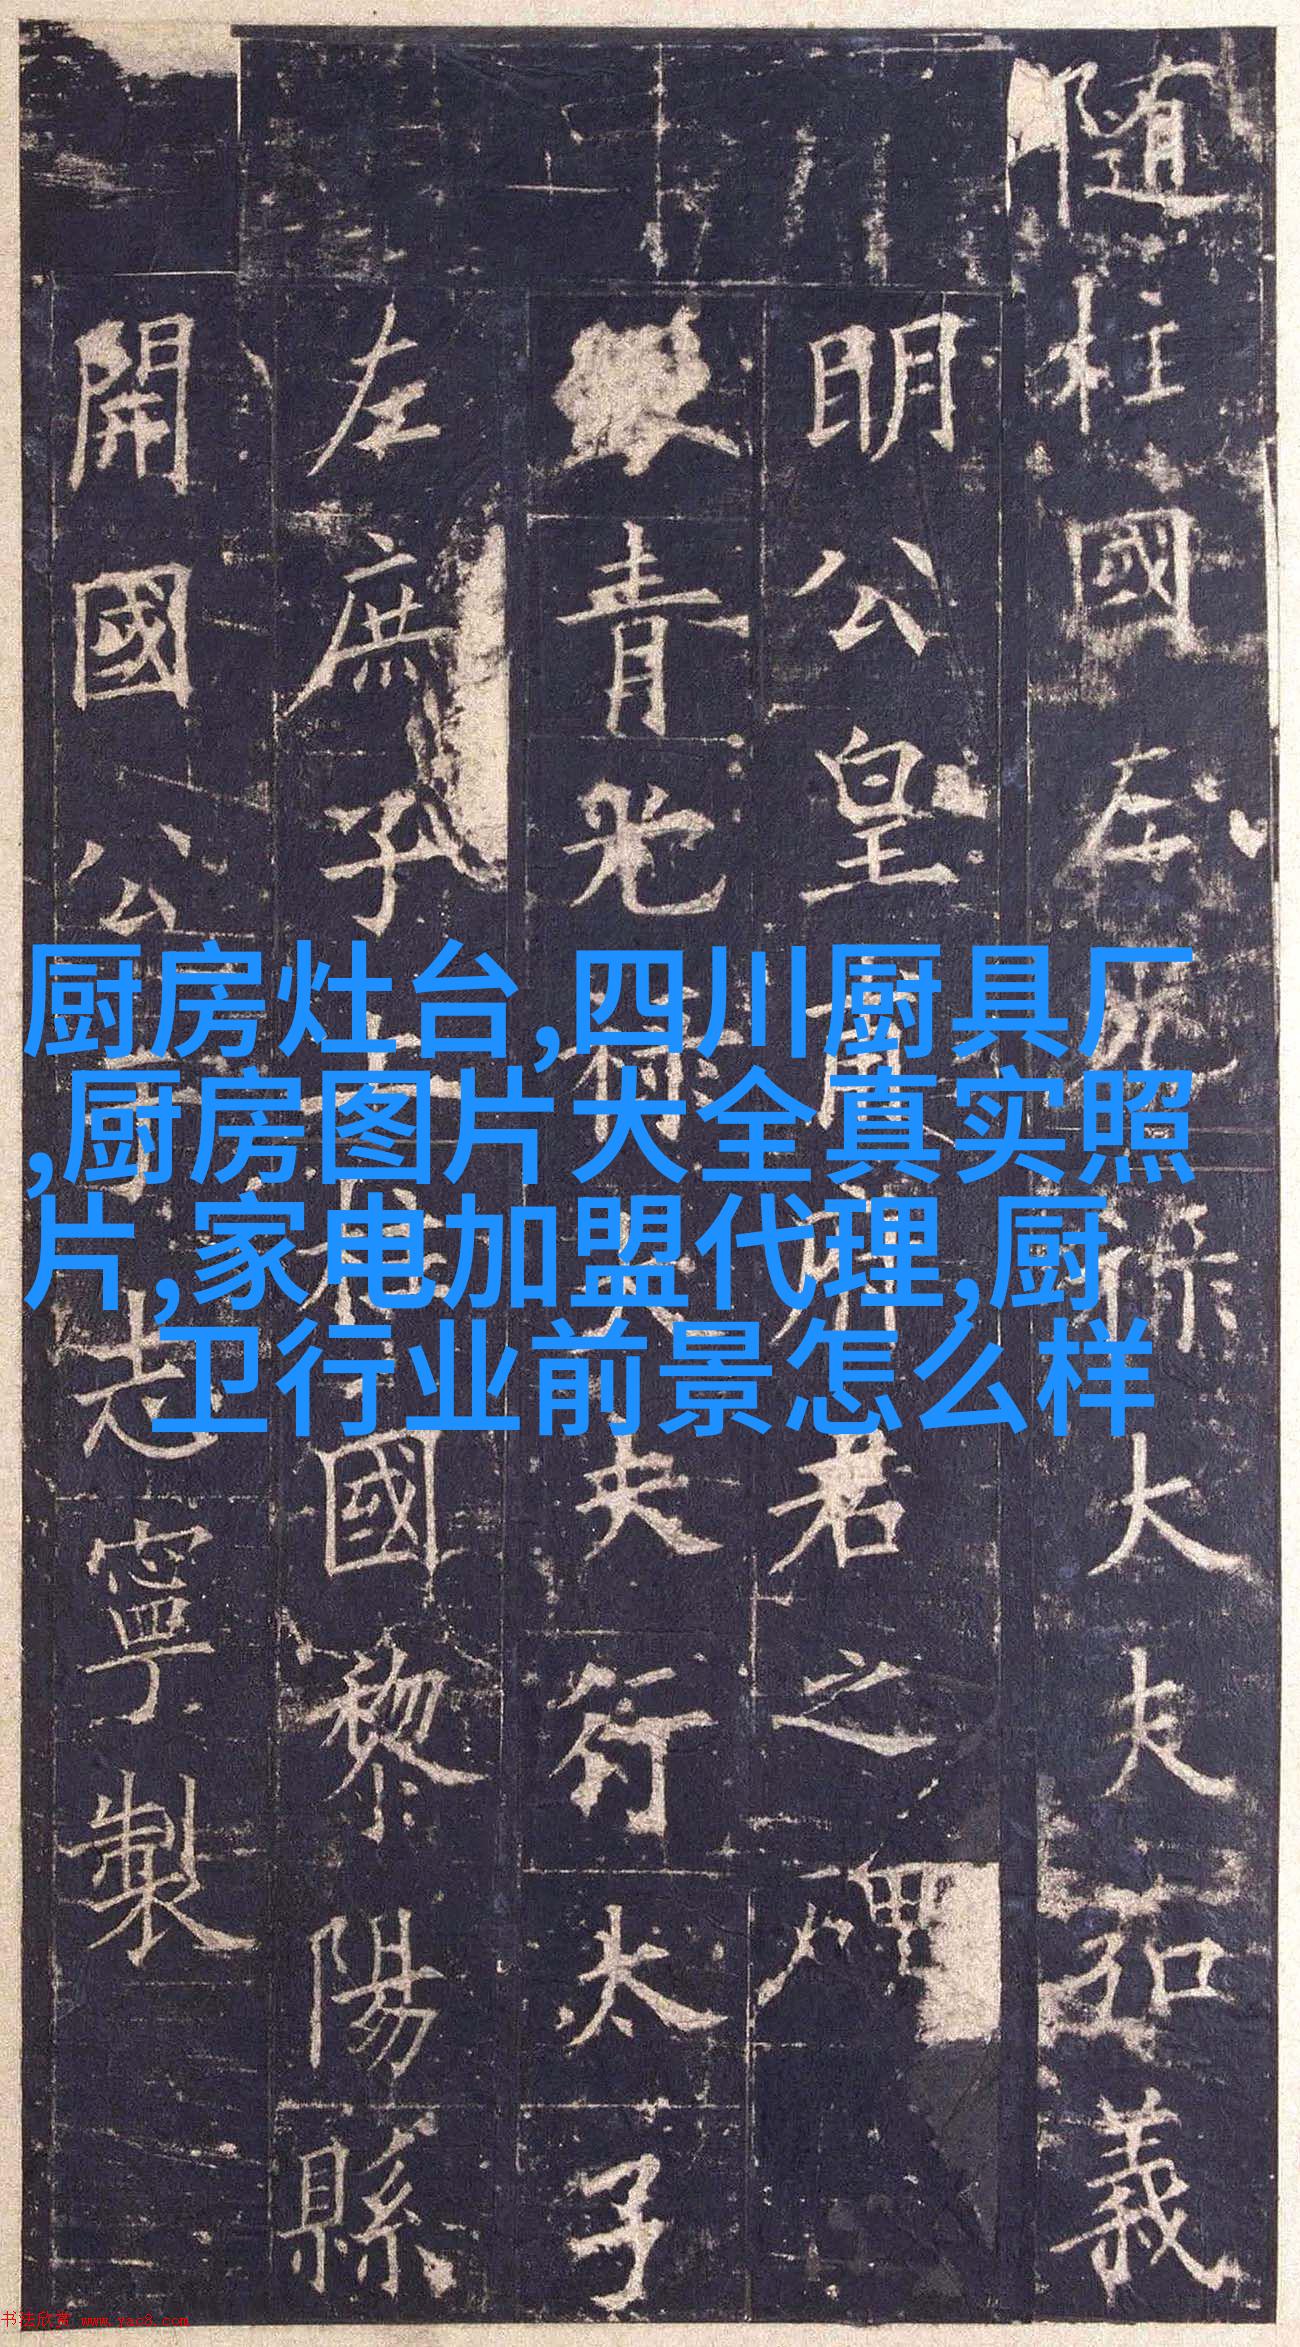 随柱國左光祿大夫弘義
明公皇甫府君之碑
青光祿大夫行太子
左庶子上柱國黎陽縣
開國公于志寧製
厨房灶台,四川厨具厂
,厨房图片大全真实照
片,家电加盟代理,厨
卫行业前景怎么样
书法欣赏 www.yac8.com